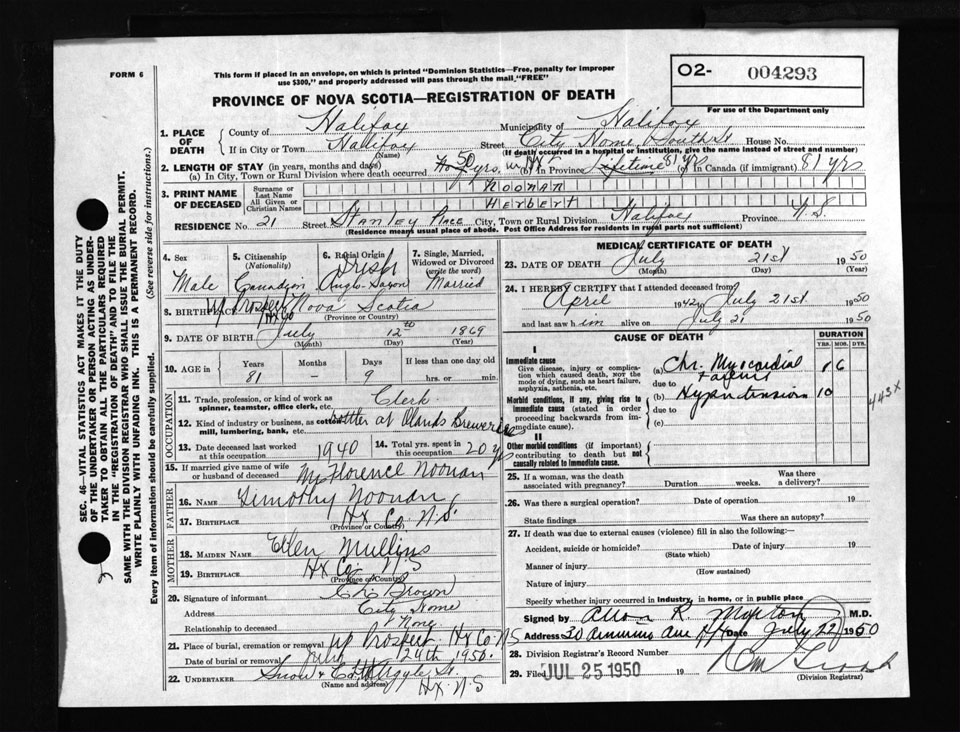 FORM 6
This form if placed in an envelope, on which is printed "Dominion Statistics—Free, penalty for improper
use $300," and properly addressed will pass through the mail "FREE"
O2- 004293
For use of the Department only
PROVINCE OF NOVA SCOTIA—REGISTRATION OF DEATH
1. PLACE OF DEATH
County of Halifax Municipality of Halifax
If in City or Town Halifax Street City Home, South St House No.
(Name) (If death occurred in a hospital or institution, give the name instead of street and number)
2. LENGTH OF STAY (in years, months and days)
(a) In City, Town or Rural Division where death occurred 50 yrs. in Hfx (b) In Province Lifetime 81 yrs (c) In Canada (if immigrant) 81 yrs
3. PRINT NAME OF DECEASED
Surname or Last Name NOONAN
All Given or Christian Names HERBERT
RESIDENCE No. 21 Street Stanley Place City, Town or Rural Division Halifax Province N.S.
(Residence means usual place of abode. Post Office Address for residents in rural parts not sufficient)
4. Sex Male
5. Citizenship (Nationality) Canadian
6. Racial Origin Irish Anglo Saxon
7. Single, Married, Widowed or Divorced (write the word) Married
8. BIRTHPLACE Up Prospect Hfx Co Nova Scotia
(Province or Country)
9. DATE OF BIRTH July 12th 1869
(Month) (Day) (Year)
10. AGE in Years 81 Months - Days 9 If less than one day old hrs. or min.
OCCUPATION
11. Trade, profession, or kind of work as spinner, teamster, office clerk, etc. Clerk
12. Kind of industry or business, as cotton mill, lumbering, bank, etc. bottler at Olands Breweries
13. Date deceased last worked at this occupation 1940
14. Total yrs. spent in this occupation 20 yrs
15. If married give name of wife or husband of deceased Mrs Florence Noonan
FATHER
16. NAME Timothy Noonan
17. BIRTHPLACE Hx Co. N.S.
(Province or Country)
MOTHER
18. MAIDEN NAME Ellen Mullins
19. BIRTHPLACE Hx Co. N.S
(Province or Country)
20. Signature of informant Brown
Address City Home
Relationship to deceased None
21. Place of burial, cremation or removal Up Prospect Hx Co NS
Date of burial or removal July 24th 1950.
22. UNDERTAKER Snow & Co Argyle St. Hx. N.S
(Name and address)
MEDICAL CERTIFICATE OF DEATH
23. DATE OF DEATH July 21st 1950
(Month) (Day) (Year)
24. I HEREBY CERTIFY that I attended deceased from
April 1942 to July 21st 1950
and last saw him alive on July 21 1950
CAUSE OF DEATH
DURATION
YRS. MOS. DYS.
I
Immediate cause
Give disease, injury or complication which caused death, NOT the mode of dying, such as heart failure, asphyxia, asthenia, etc.
(a) Chr. Myocardial Failure 6
due to
Morbid conditions, if any, giving rise to immediate cause (stated in order proceeding backwards from immediate cause).
(b) Hypertension 10
due to
(c)
443X
II
Other morbid conditions (if important) contributing to death but not causally related to immediate cause.
25. If a woman, was the death associated with pregnancy? Duration weeks. Was there a delivery?
26. Was there a surgical operation? Date of operation 19
State findings Was there an autopsy?
27. If death was due to external causes (violence) fill in also the following:—
Accident, suicide or homicide? Date of injury 19
(State which)
Manner of injury
(How sustained)
Nature of injury
Specify whether injury occurred in industry, in home, or in public place
Signed by Allan R. Morton M.D.
Address Ave Hfx Date July 22 1950
28. Division Registrar's Record Number
29. Filed JUL 25 1950 19
(Division Registrar)
SEC. 46—VITAL STATISTICS ACT MAKES IT THE DUTY
OF THE UNDERTAKER OR PERSON ACTING AS UNDER-
TAKER TO OBTAIN ALL THE PARTICULARS REQUIRED
IN THE "REGISTRATION OF DEATH" AND TO FILE THE
SAME WITH THE DIVISION REGISTRAR WHO SHALL ISSUE THE BURIAL PERMIT.
WRITE PLAINLY WITH UNFADING INK. THIS IS A PERMANENT RECORD.
Every item of information should be carefully supplied. (See reverse side for instructions.)